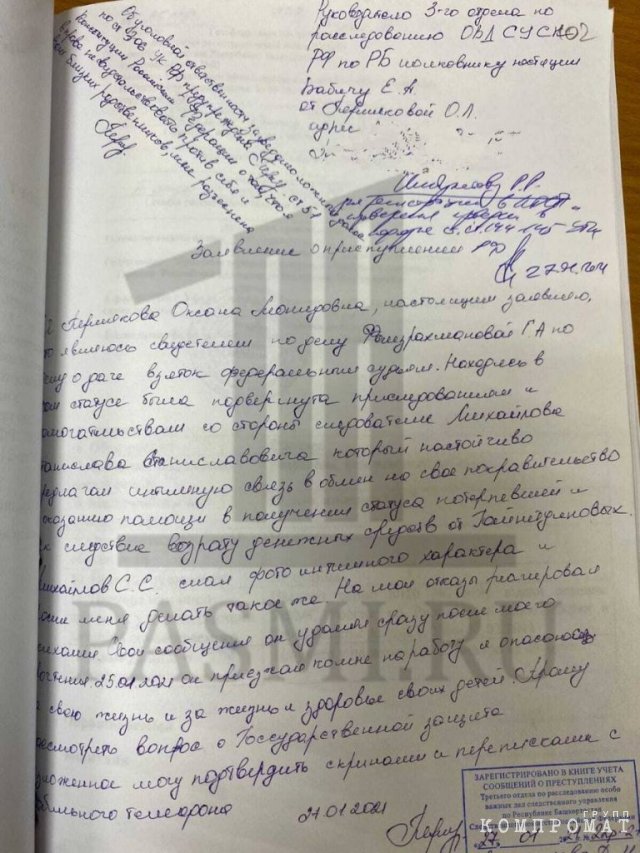 Руководителю 3-го отдела по
расследованию ОВД СУ СК
РФ по РБ полковнику юстиции
Бабичу Е.А.
от Пермяковой О.Л.
адрес
102
Об уголовной ответственности за заведомо ложный донос
по ст. 306 УК РФ предупреждена. Перм
ст 51
Конституции Российской Федерации о том, что я
вправе не свидетельствовать против себя и
своих близких родственников, мне разъяснена
Перм
Заявление о преступлении
РФ
27.01.2021
Пермякова Оксана, настоящим заявляю,
являюсь свидетелем по делу ГА по
о даче взяток федеральным судьям. Находясь в
статусе была подвергнута преследованиям и
домогательствам со стороны следователя Михайлова
Станислава Станиславовича который настойчиво
предлагал интимную связь в обмен на свое покравительство
оказанию помощи в получении статуса потерпевшей и
следствие возрату денежных средств от Гайнетдиновых.
Михайлов С.С. слал фото интимного характера и
меня делать такое же На мои отказы реагировал
Свои сообщения он удалял сразу после моего
25.01.2021 он приезжал ко мне на работу Я опасаюсь
свою жизнь и за жизнь и здоровье своих детей. Прошу
рассмотреть вопрос о Государственной защита
изложенное могу подтвердить скринами и переписками с
мобильного телефона 27.01.2021
Перм
PASMI.RU
ЗАРЕГИСТРИРОВАНО В КНИГЕ УЧЕТА
СООБЩЕНИЙ О ПРЕСТУПЛЕНИЯХ
Третьего отдела по расследованию особо
важных дел следственного управления
по Республике Башкортостан
27 01
ГРУПП
КОМПРОМАТ